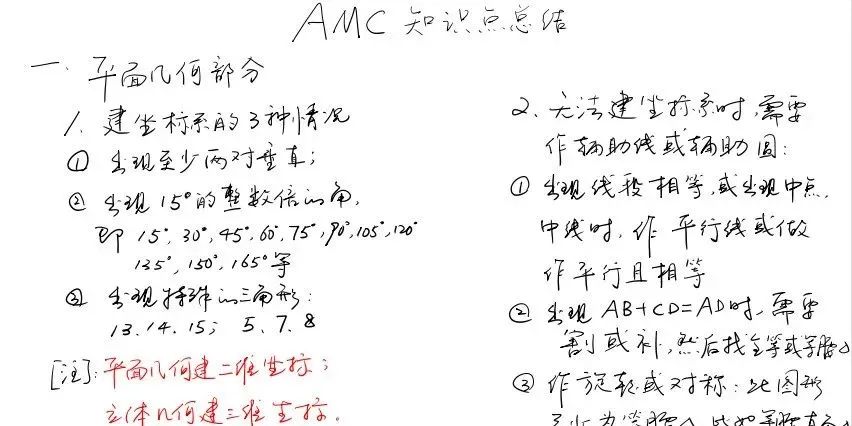 AMC 知识点总结
一. 平面几何部分
1. 建坐标系的3种情况
① 出现至少两对垂直;
② 出现15°的整数倍的角,
即 15°, 30°, 45°, 60°, 75°, 90°, 105°, 120°
135°, 150°, 165° 等
③ 出现特殊的三角形:
13. 14. 15; 5. 7. 8
[注]: 平面几何建二维坐标;
立体几何建三维坐标.
2. 无法建坐标系时, 需要
作辅助线或辅助圆:
① 出现线段相等, 或出现中点,
中线时, 作平行线或做
作平行且相等
② 出现 AB+CD=AD时, 需要
割或补, 然后找全等或等腰△
③ 作旋转或对称: 此图形
至少为等腰△, 比如等腰直